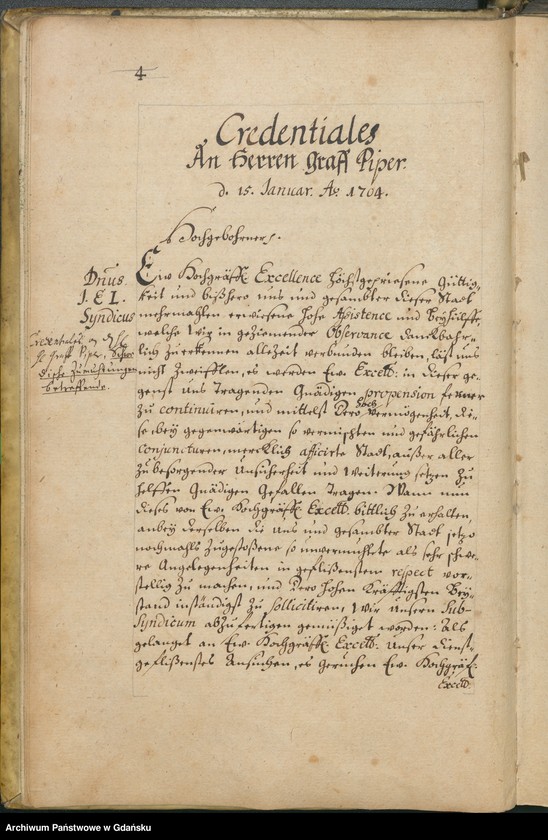 4
Credentiales
An Herren Graff Piper.
d. 15. Januar. Aõ 1704.
Hochgebohrner p.
Dnus.
I. E. I.
Syndicus
Credentiales an den
H. Graff Piper, Schwe-
dische Zumuthungen
betreffende.
Ew Hochgräffl. Excellence Höchstgepriesene Güttig-
keit und bißhero uns und gesambter dieser Stadt
mehrmahlen erwiesene hohe Assistence und Beyhülffe,
welche Wir in geziemender Observance danckbahr-
lich zuerkennen allezeit verbunden bleiben, läst uns
nicht zweifflen, es werden Ew. Excell: in dieser ge-
genst uns tragenden Gnädigen propension ferner
zu continuiren, und mittelst Dero hoch Vermögenheit, die-
se bey gegenwärtigen so vermischten und gefährlichen
Conjuncturen, mercklich afficirte Stadt, außer aller
zubesorgender Unsicherheit und Weiterung setzen zu
helffen Gnädigen Gefallen tragen. Wann nun
dieses von Ew. Hochgräffl. Excell. bittlich zu erhalten,
anbey derselben die uns und gesambter Stadt jetzo
nochmahls zugestoßene so unvermuhtete als sehr schwe-
re Angelegenheiten in geflißenstem respect vor-
stellig zu machen, und Dero hohen kräfftigsten Bey-
stand inständigst zu sollicitiren, Wir unsern Sub-
Syndicum abzufertigen gemüßiget worden: Als
gelanget an Ew. Hochgräffl. Excell: Unser dienst-
geflißenstes Ansuchen, es geruhen Ew. Hochgräfl.
Excell.
Archiwum Państwowe w Gdańsku